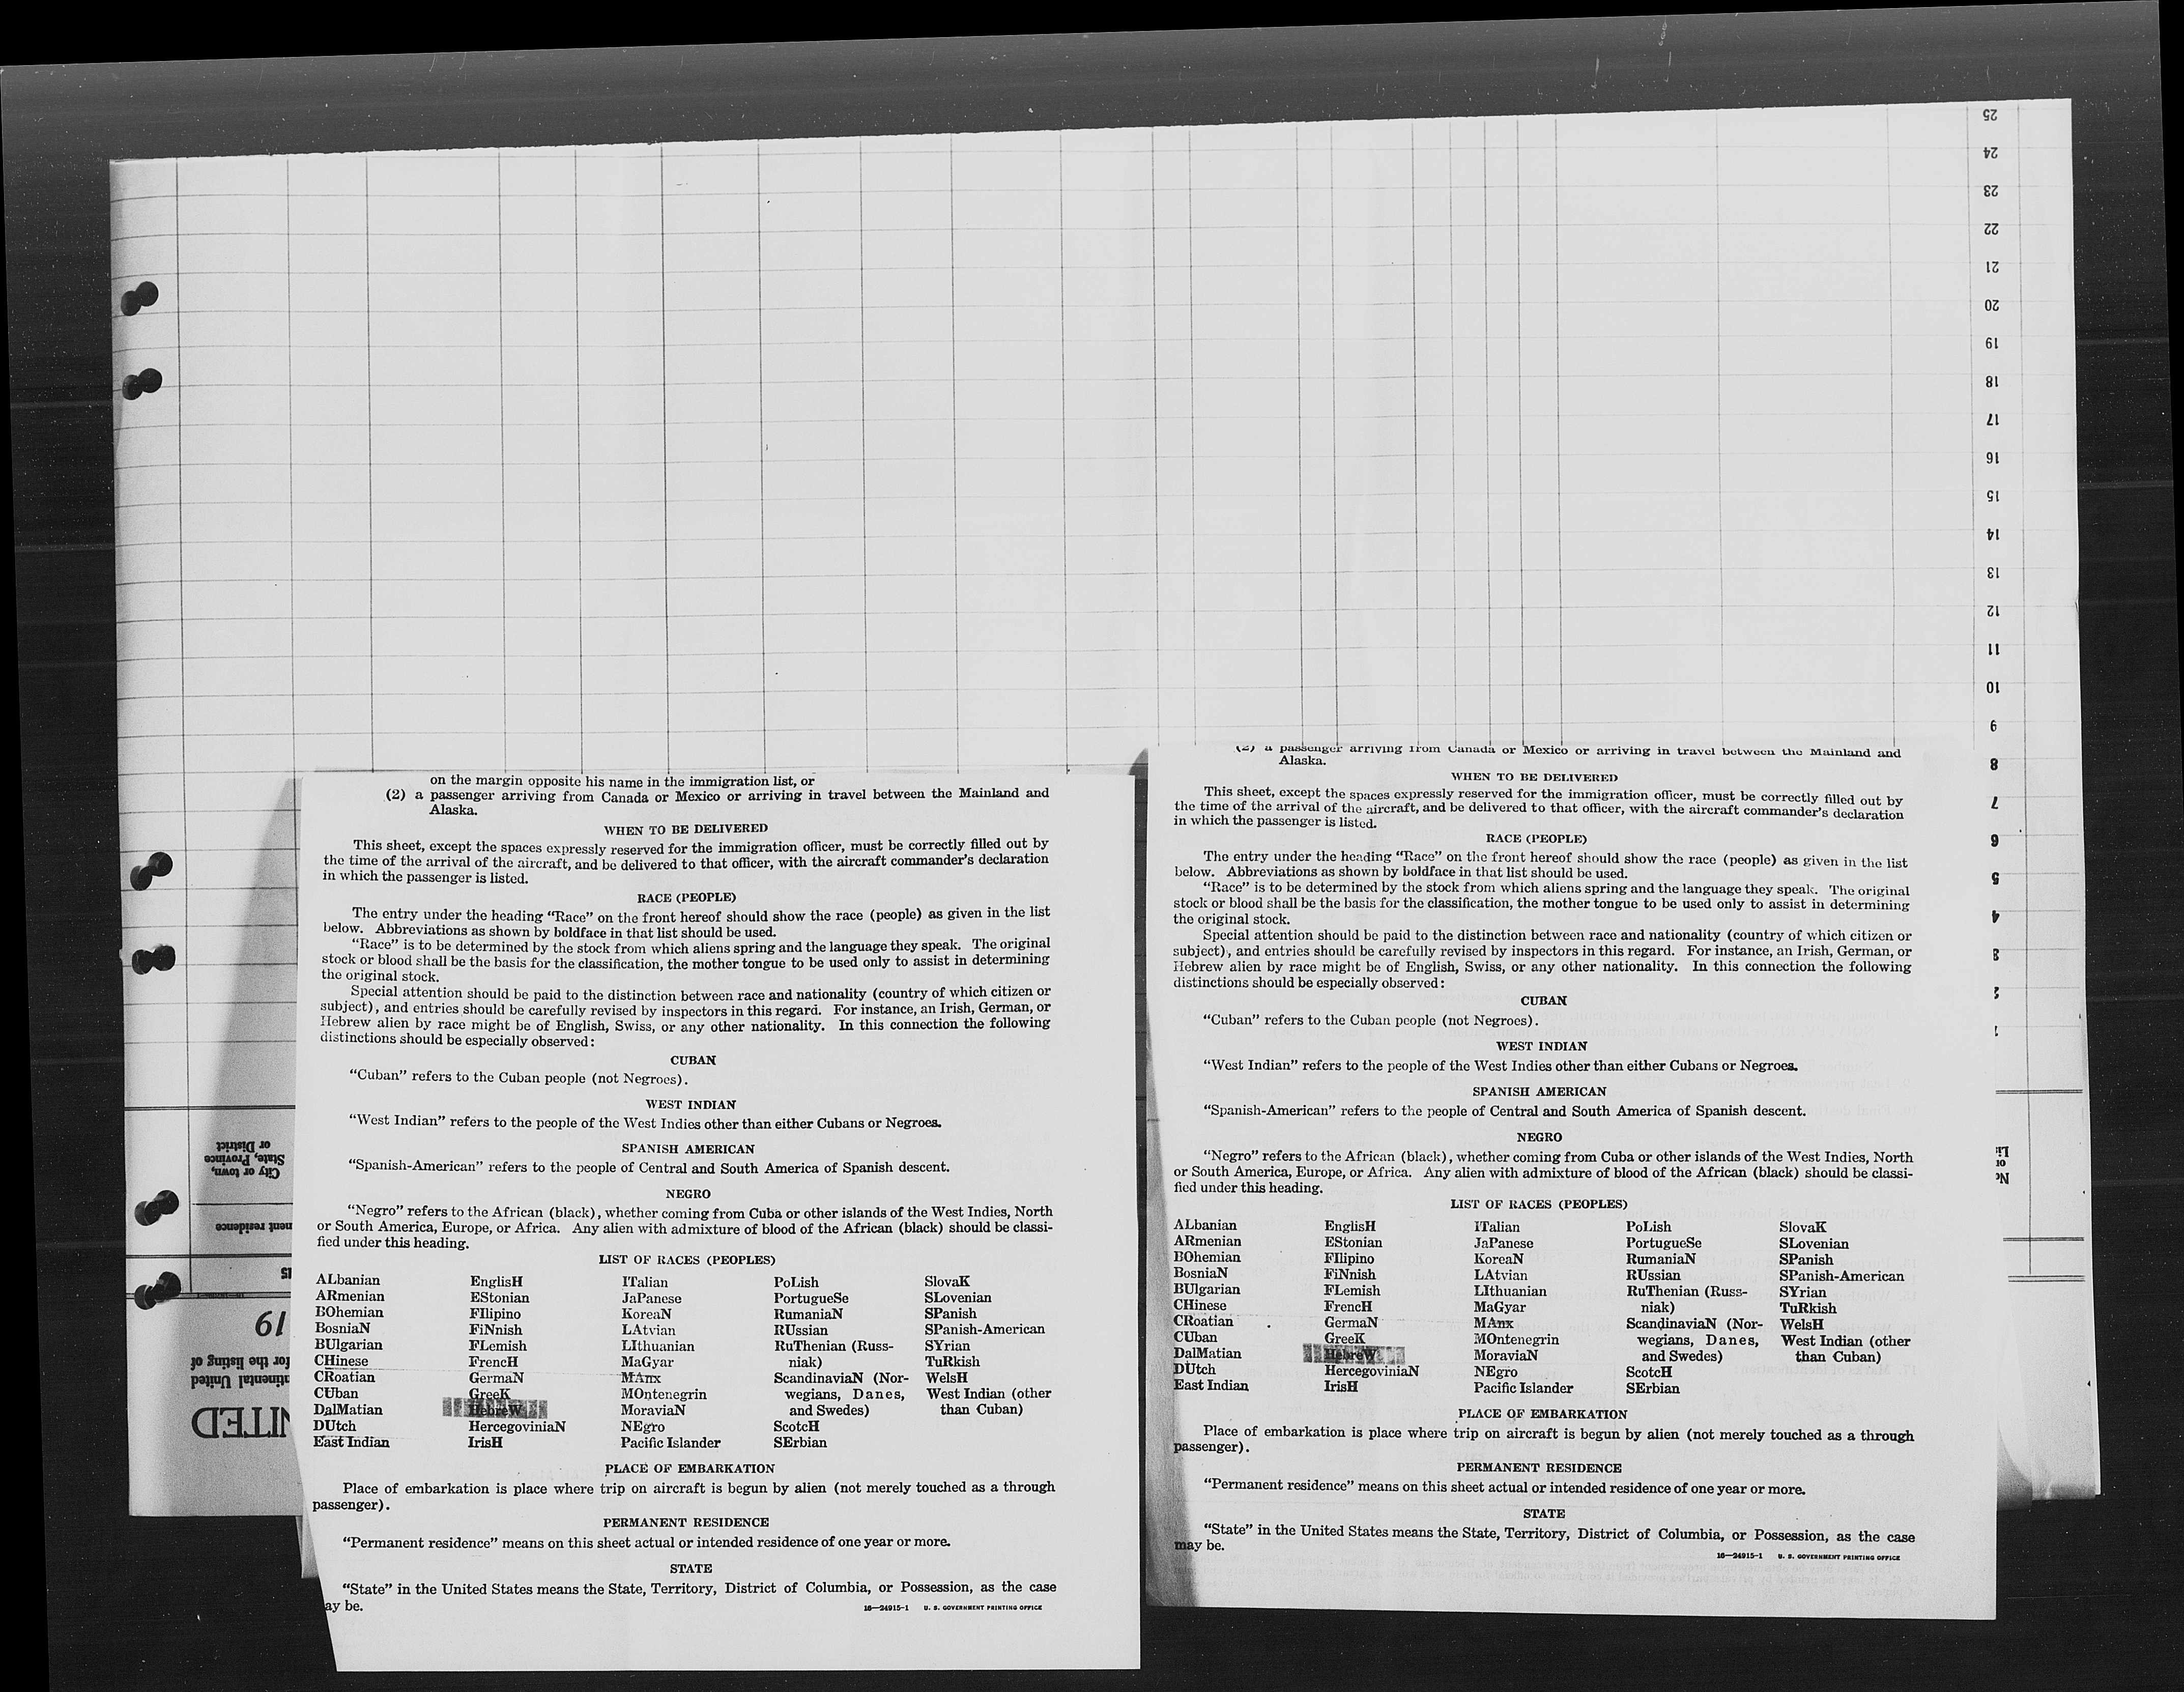 25
24
23
22
21
20
19
18
17
16
15
14
13
12
11
10
9
8
7
6
5
4
3
2
1
City or town,
State, Province
or District
nent residence
19
for the listing of
tinental United
NITED
on the margin opposite his name in the immigration list, or
(2) a passenger arriving from Canada or Mexico or arriving in travel between the Mainland and
Alaska.
WHEN TO BE DELIVERED
This sheet, except the spaces expressly reserved for the immigration officer, must be correctly filled out by
the time of the arrival of the aircraft, and be delivered to that officer, with the aircraft commander's declaration
in which the passenger is listed.
RACE (PEOPLE)
The entry under the heading "Race" on the front hereof should show the race (people) as given in the list
below. Abbreviations as shown by boldface in that list should be used.
"Race" is to be determined by the stock from which aliens spring and the language they speak. The original
stock or blood shall be the basis for the classification, the mother tongue to be used only to assist in determining
the original stock.
Special attention should be paid to the distinction between race and nationality (country of which citizen or
subject), and entries should be carefully revised by inspectors in this regard. For instance, an Irish, German, or
Hebrew alien by race might be of English, Swiss, or any other nationality. In this connection the following
distinctions should be especially observed:
CUBAN
"Cuban" refers to the Cuban people (not Negroes).
WEST INDIAN
"West Indian" refers to the people of the West Indies other than either Cubans or Negroes.
SPANISH AMERICAN
"Spanish-American" refers to the people of Central and South America of Spanish descent.
NEGRO
"Negro" refers to the African (black), whether coming from Cuba or other islands of the West Indies, North
or South America, Europe, or Africa. Any alien with admixture of blood of the African (black) should be classi-
fied under this heading.
LIST OF RACES (PEOPLES)
ALbanian EnglisH ITalian PoLish SlovaK
ARmenian EStonian JaPanese PortugueSe SLovenian
BOhemian FIlipino KoreaN RumaniaN SPanish
BosniaN FiNnish LAtvian RUssian SPanish-American
BUlgarian FLemish LIthuanian RuThenian (Russ- SYrian
CHinese FrencH MaGyar niak) TuRkish
CRoatian GermaN MAnx ScandinaviaN (Nor- WelsH
CUban GreeK MOntenegrin wegians, Danes, West Indian (other
DalMatian HebreW MoraviaN and Swedes) than Cuban)
DUtch HercegoviniaN NEgro ScotcH
East Indian IrisH Pacific Islander SErbian
PLACE OF EMBARKATION
Place of embarkation is place where trip on aircraft is begun by alien (not merely touched as a through
passenger).
PERMANENT RESIDENCE
"Permanent residence" means on this sheet actual or intended residence of one year or more.
STATE
"State" in the United States means the State, Territory, District of Columbia, or Possession, as the case
ay be.
16—24915-1 U. S. GOVERNMENT PRINTING OFFICE
(2) a passenger arriving from Canada or Mexico or arriving in travel between the Mainland and
Alaska.
WHEN TO BE DELIVERED
This sheet, except the spaces expressly reserved for the immigration officer, must be correctly filled out by
the time of the arrival of the aircraft, and be delivered to that officer, with the aircraft commander's declaration
in which the passenger is listed.
RACE (PEOPLE)
The entry under the heading "Race" on the front hereof should show the race (people) as given in the list
below. Abbreviations as shown by boldface in that list should be used.
"Race" is to be determined by the stock from which aliens spring and the language they speak. The original
stock or blood shall be the basis for the classification, the mother tongue to be used only to assist in determining
the original stock.
Special attention should be paid to the distinction between race and nationality (country of which citizen or
subject), and entries should be carefully revised by inspectors in this regard. For instance, an Irish, German, or
Hebrew alien by race might be of English, Swiss, or any other nationality. In this connection the following
distinctions should be especially observed:
CUBAN
"Cuban" refers to the Cuban people (not Negroes).
WEST INDIAN
"West Indian" refers to the people of the West Indies other than either Cubans or Negroes.
SPANISH AMERICAN
"Spanish-American" refers to the people of Central and South America of Spanish descent.
NEGRO
"Negro" refers to the African (black), whether coming from Cuba or other islands of the West Indies, North
or South America, Europe, or Africa. Any alien with admixture of blood of the African (black) should be classi-
fied under this heading.
LIST OF RACES (PEOPLES)
ALbanian EnglisH ITalian PoLish SlovaK
ARmenian EStonian JaPanese PortugueSe SLovenian
BOhemian FIlipino KoreaN RumaniaN SPanish
BosniaN FiNnish LAtvian RUssian SPanish-American
BUlgarian FLemish LIthuanian RuThenian (Russ- SYrian
CHinese FrencH MaGyar niak) TuRkish
CRoatian GermaN MAnx ScandinaviaN (Nor- WelsH
CUban GreeK MOntenegrin wegians, Danes, West Indian (other
DalMatian HebreW MoraviaN and Swedes) than Cuban)
DUtch HercegoviniaN NEgro ScotcH
East Indian IrisH Pacific Islander SErbian
PLACE OF EMBARKATION
Place of embarkation is place where trip on aircraft is begun by alien (not merely touched as a through
passenger).
PERMANENT RESIDENCE
"Permanent residence" means on this sheet actual or intended residence of one year or more.
STATE
"State" in the United States means the State, Territory, District of Columbia, or Possession, as the case
may be.
16—24915-1 U. S. GOVERNMENT PRINTING OFFICE